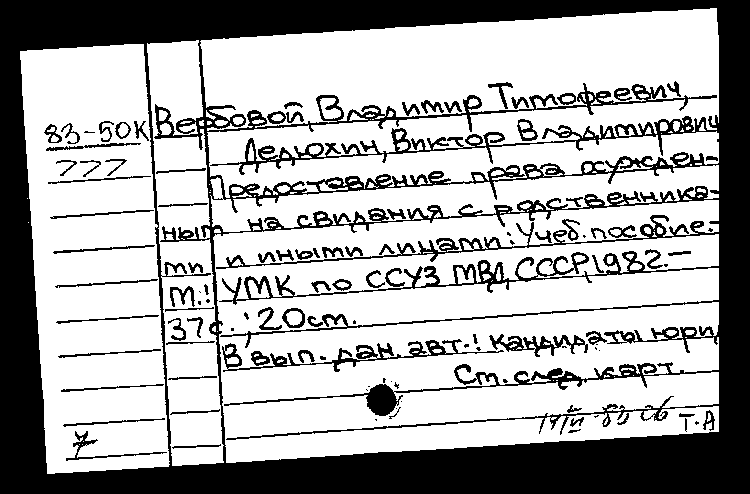 83-50К Вербовой, Владимир Тимофеевич,
777 Дедюхин, Виктор Владимирович
Предоставление права осужден-
ным на свидания с родственника-
ми и иными лицами: Учеб. пособие.-
М.: УМК по ССУЗ МВД СССР, 1982.-
37с.; 20см.
В вып. дан. авт.: кандидаты юрид
См. след. карт.
Т.А
7